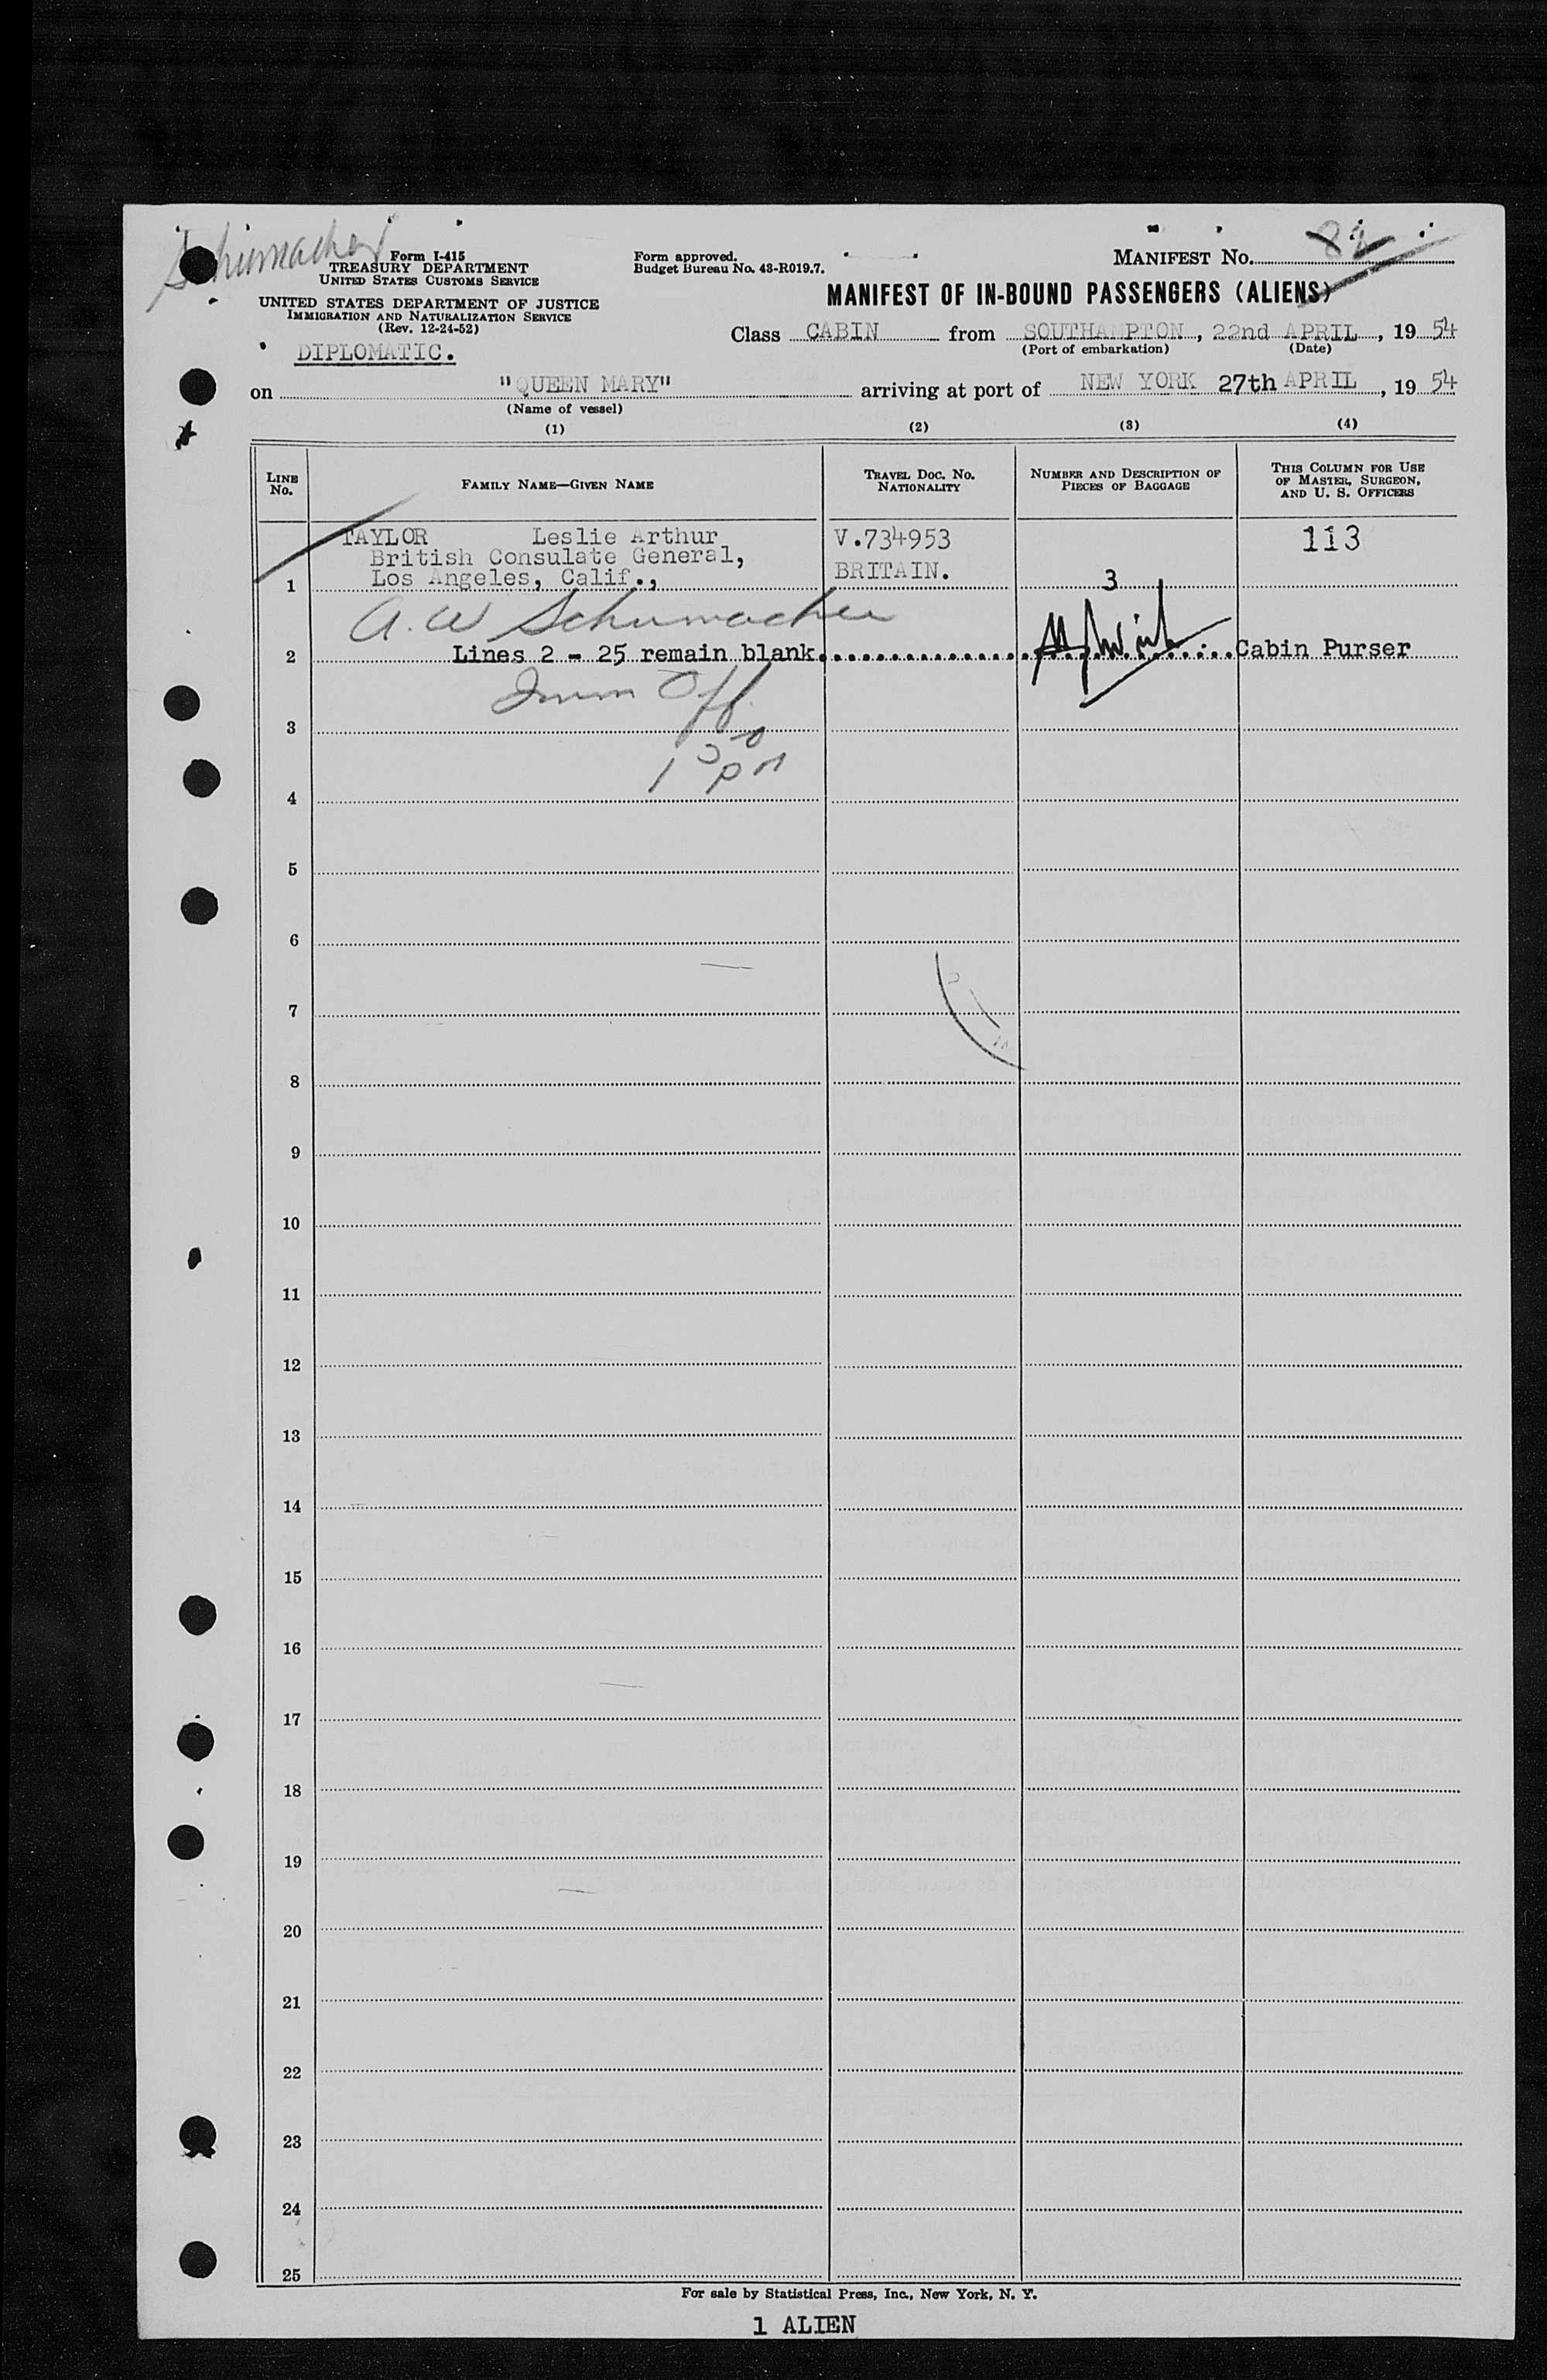 Schumacher
Form I-415
TREASURY DEPARTMENT
UNITED STATES CUSTOMS SERVICE
UNITED STATES DEPARTMENT OF JUSTICE
IMMIGRATION AND NATURALIZATION SERVICE
(Rev. 12-24-52)
DIPLOMATIC.
Form approved.
Budget Bureau No. 43-R019.7.
MANIFEST NO. 82
MANIFEST OF IN-BOUND PASSENGERS (ALIENS)
Class CABIN from SOUTHAMPTON, 22nd APRIL, 19 54
(Port of embarkation) (Date)
on "QUEEN MARY" arriving at port of NEW YORK 27th APRIL, 19 54
(Name of vessel)
(1) (2) (3) (4)
LINE NO. FAMILY NAME—GIVEN NAME TRAVEL DOC. NO. NATIONALITY NUMBER AND DESCRIPTION OF PIECES OF BAGGAGE THIS COLUMN FOR USE OF MASTER, SURGEON, AND U. S. OFFICERS
TAYLOR Leslie Arthur V.734953 113
British Consulate General,
1 Los Angeles, Calif., BRITAIN. 3
A. W Schumacher
2 Lines 2 - 25 remain blank Cabin Purser
Imm Off
3
1 50 pm
4
5
6
7
8
9
10
11
12
13
14
15
16
17
18
19
20
21
22
23
24
25
For sale by Statistical Press, Inc., New York, N. Y.
1 ALIEN